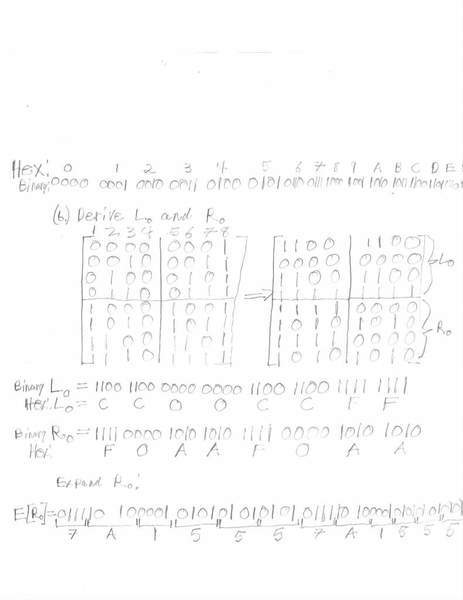 Hex: 0 1 2 3 4 5 6 7 8 9 A B C D E
Binary: 0000 0001 0010 0011 0100 0101 0110 0111 1000 1001 1010 1011 1100 1101
(b) Derive L0 and R0
1 2 3 4 5 6 7 8
0 0 0 0 0 0 0 1 1 1 0 0 1 1 0 0
0 0 1 0 0 0 1 1 0 0 0 0 0 0 0 0 L0
0 1 0 0 0 1 0 1 1 1 0 0 1 1 0 0
0 1 1 0 0 1 1 1 1 1 1 1 1 1 1 1
1 0 0 0 1 0 0 1 1 1 1 1 0 0 0 0
1 0 1 0 1 0 1 1 1 0 1 0 1 0 1 0 R0
1 1 0 0 1 1 0 1 1 1 1 1 0 0 0 0
1 1 1 0 1 1 1 1 1 0 1 0 1 0 1 0
Binary L0 = 1100 1100 0000 0000 1100 1100 1111 1111
Hex: L0 = C C 0 0 C C F F
Binary R0 = 1111 0000 1010 1010 1111 0000 1010 1010
Hex: F 0 A A F 0 A A
Expand R0:
E[R0] = 011110 100001 010101 010101 011110 100001 010101 010101
7 A 1 5 5 5 7 A 1 5 5 5